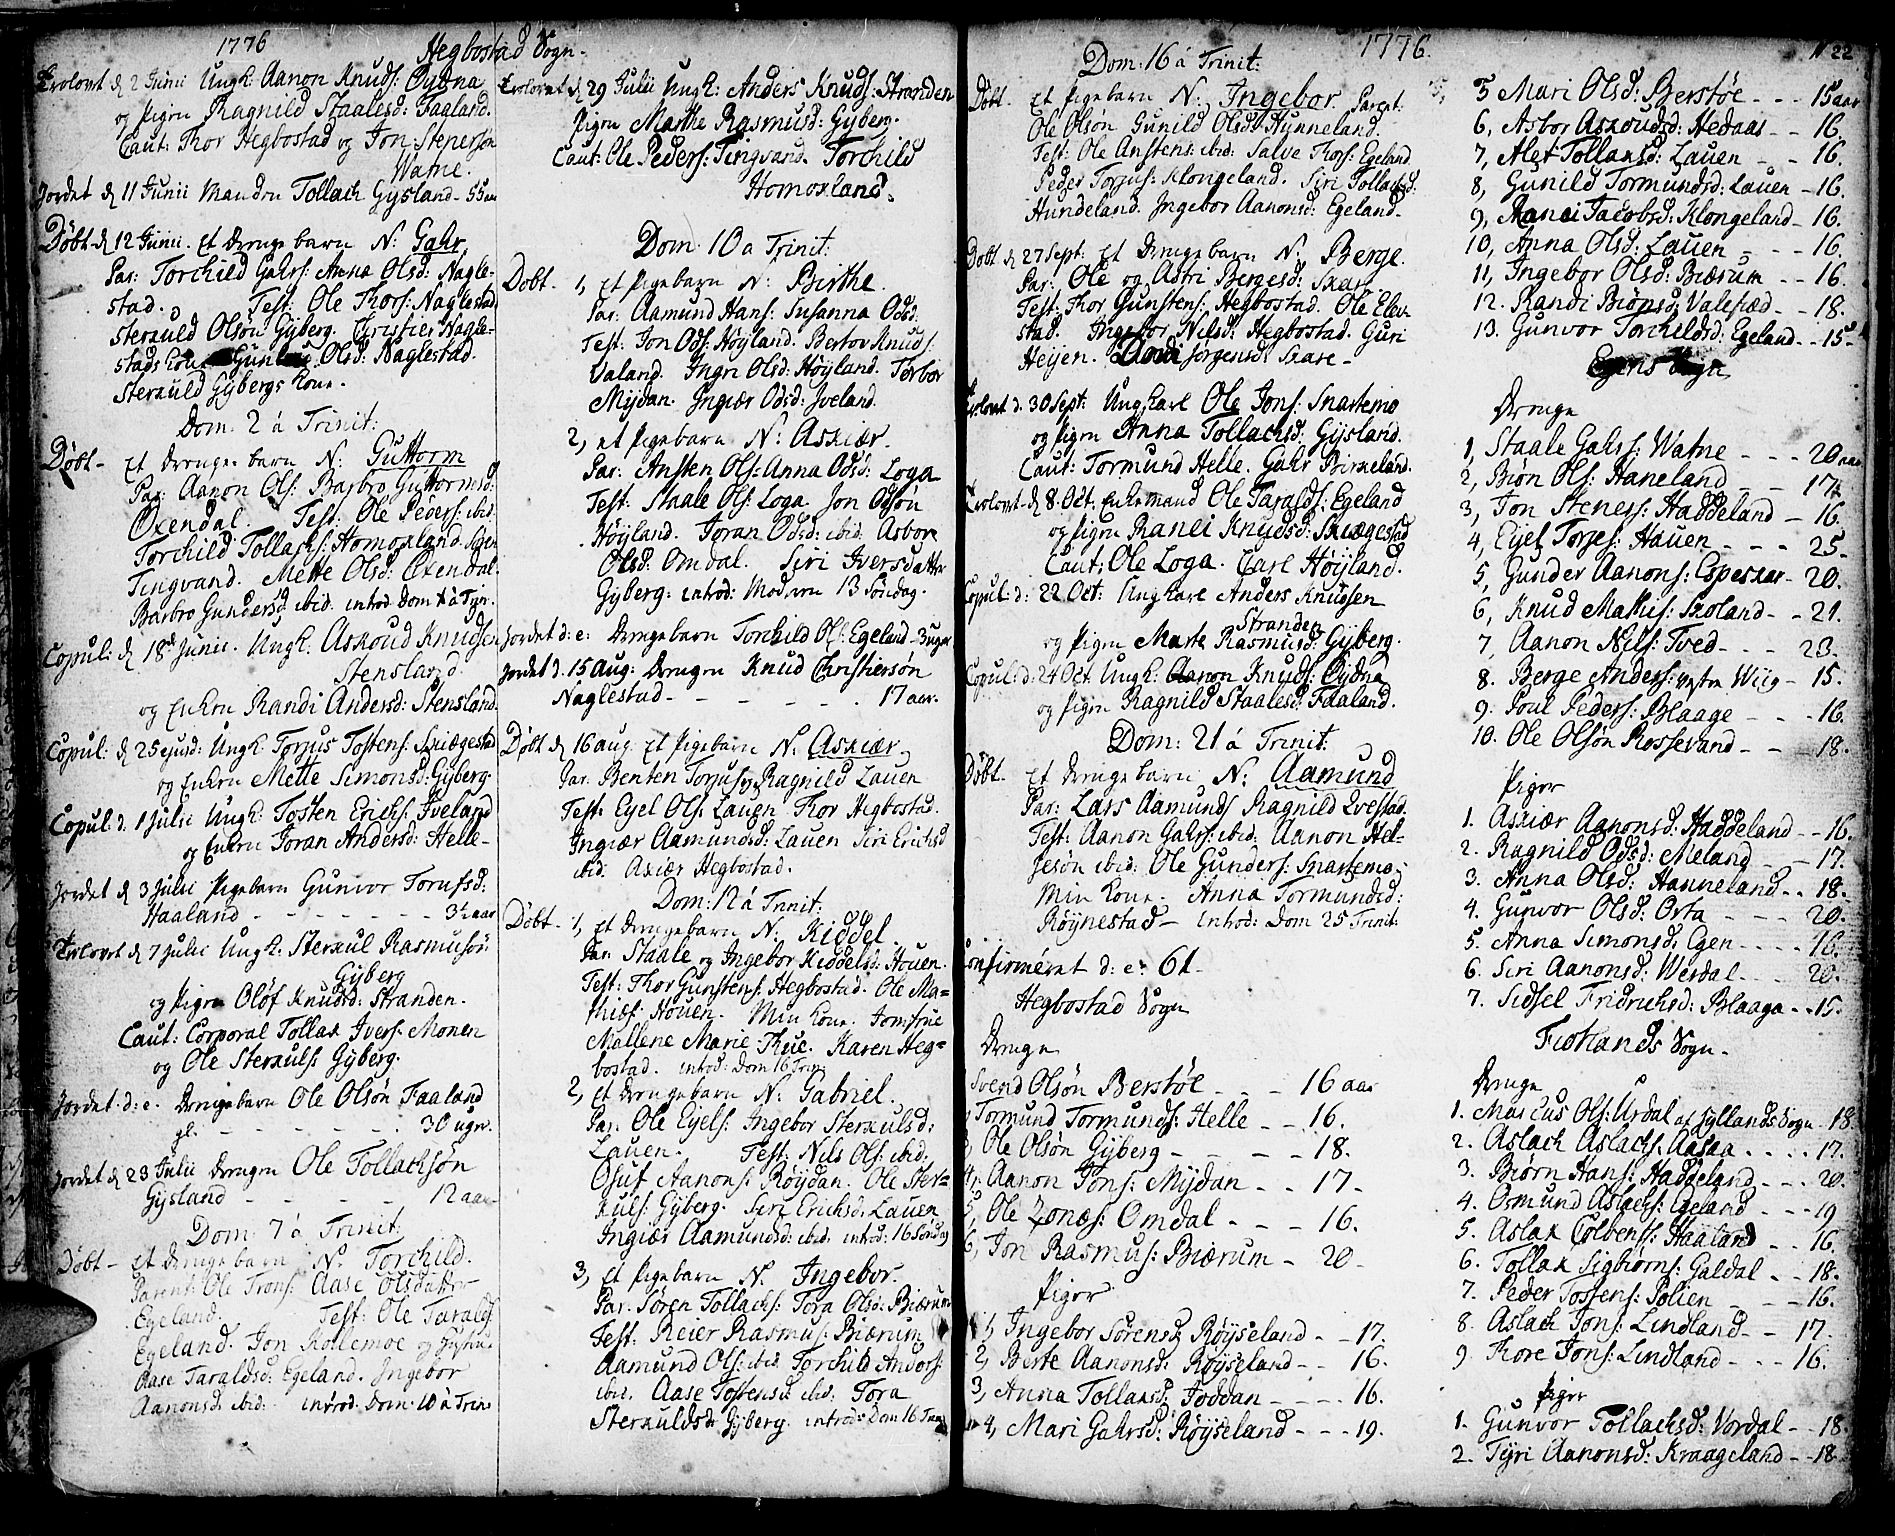 1776 Hegbostad Sogn.
Trolovet d 2 Junii Ungk: Aanon Knuds: Øydna
og Pigen Ragnild Staalesd: Faaland.
Caut: Thor Hegbostad og Jon Stenersøn
Watne.
Jordet d 11 Junii Manden Tollach Gysland - 55 aar
Døbt d 12 Junii. Et Drenge barn N: Gahr
Par: Torchild Gahrs: Anna Olsd: Nagle-
stad. Test: Ole Thors: Naglestad
Sterkuld Olsøn Gyberg. Christier Nagle-
stads Kone Gunbor Olsd: Naglestad.
Sterkuld Gybergs Kone.
Dom: 2 á Trinit:
Døbt - Et Drenge barn N: Guttorm
Par: Aanon Ols: Barbro Guttormsd:
Oxendal. Test: Ole Peders: ibid.
Torchild Tollachs: Homoxland.
Tingvand. Mette Olsd: Oxendal.
Barbro Gundersd ibid. introd Dom á Tr.
Copul: d 18d Junii. Ungk: Askoud Knudsen
Stensland.
og Enken Randi Andersd: Stensland.
Copul: d 25 ejusd: Ungk: Torjus Tostens: Skiægestad
og Enken Mette Simonsd: Gyberg.
Copul: d. 1 Julii Ungk: Tosten Erichs: Iveland
og Enken Joran Andersd: Helle-
Jordet d 3 Julii Pigebarn Gunvor Torufsd:
Haaland - - - - - - 3½ aar
Trolovet d 7 Julii Ungk: Sterkul Rasmusøn
Gyberg
og Pigen Oløf Knudsd: Stranden.
Caut: Corporal Tollak Ivers: Monen
og Ole Sterkuls: Gyberg.
Jordet: d: e. Drengebarn Ole Olsøn Faaland
gl. - - - - - - 30 uger.
Jordet d 23 Julii Drengen Ole Tollachsøn
Gysland - - - - - 12 aar
Dom: 7 á Trinit:
Døbt - Et Drenge barn N. Torchild.
Parent: Ole Trons: Aase Olsdatter
Egeland. Test: Ole Taralds:
Egeland. Jon Kollemoe og Hustru
Aase Taraldsd: Egeland. Ingebor
Aanonsd: ibid: introd: Dom: 10 á Trin:
Trolovet d 29 Julii Ungk: Anders Knuds: Stranden
Pigen Marthe Rasmusd: Gyberg.
Caut: Ole Peders: Tingvand. Torchild
Homoxland.
Dom: 10 a Trinit:
Døbt. 1, et Pigebarn N: Birthe.
Par: Aamund Hans: Susanna Odsd:
Test: Jon Ods: Høyland. BerTov Knuds:
Valand. Ingri Olsd: Høyland. Torbor
Mydan. Ingiær Odsd: Iveland.
2, et Pigebarn N: Askiær.
Par: Ansten Ols: Anna Odsd: Loga
Test: Staale Ols: Loga. Jon Odsøn
Høyland. Joran Odsd: ibid. Asbor
Olsd: Omdal. Siri Iversdatter
Gyberg: introd: Moderen 13 Søndag.
Jordet d: e: Drengebarn Torchild Ols: Egeland - 3 uger
Jordet d. 15 Aug: Drengen Knud Christiersøn
Naglestad - - - - - - 17 aar.
Døbt d 16 Aug Et Pigebarn N: Askiær
Par: Benten Torjus: Ragnild Lauen
Test: Eyel Ols: Lauen Thor Hegbostad.
Ingiær Aamundsd: Lauen Siri Erichsd
ibid. Askiær Hegbostad.
Dom: 12 á Trinit:
Døbt - 1, Et Drengebarn N: Kiddel.
Par: Staale og Ingebor Kiddelsd: Houen.
Test: Thor Gunstens: Hegbostad. Ole Ma=
thiæs: Houen. Min Kone. Jomfrue
Mallene Marie Thue. Karen Heg=
bostad. introd: Dom 16 Trin:
2, Et Drengebarn N: Gabriel.
Par: Ole Eyels: Ingebor Sterkulsd:
Lauen. Test: Nils Ols: ibid:
Osuf Aanons: Røydan. Ole Ster=
kuls: Gyberg. Siri Erichsd: Lauen
Ingiær Aamundsd: ibid. introd: 16 Søndag
3, Et Pigebarn N. Ingebor.
Par: Søren Tollachs: Tora Olsd: Biærum
Test: Reier Rasmus: Biærum
Aamund Ols: ibid. Torchild Anders:
ibid. Aase Tostensd: ibid. Tora
Sterkuldsd: Gyberg. introd: Dom 16 Trin:
1776. 22
Dom: 16 á Trinit:
Døbt. Et Pigebarn N: Ingebor. Parent:
Ole Olsøn Gunild Olsd: Hunneland.
Test: Ole Anstens: ibid: Salve Thors: Egeland.
Peder Torjus: Klongeland. Siri Tollachsd.
Hundeland. Ingebor Aanonsd: Egeland.
Døbt d 27 Sept: Et Drengebarn N: Berge.
Par: Ole og Astri Bergesd: Skare.
Test: Thor Gunstens: Hegbostad. Ole Elev-
stad. Ingebor Nilsd: Hegbostad. Guri
Heyen. Dordi Jørgensd: Skare -
Trolovet d. 30 Sept: Ungkarl Ole Jons: Snartemo
og Pigen Anna Tollachsd: Gysland.
Caut: Tormund Helle. Gahr Birkeland.
Trolovet d 8 Oct. Enkemand Ole Taralds: Egeland
og Pigen Randi Knudsd: Skiægestad
Caut: Ole Loga. Carl Høyland.
Copul: d: 22 Oct: Ungkarl Anders Knudsen
Stranden
og Pigen Marte Rasmusd: Gyberg.
Copul: d. 24 Oct. Ungk: Aanon Knuds: Øydna
og Pigen Ragnild Staalesd: Faaland.
Dom: 21 á Trinit:
Døbt. Et Drengebarn N: Aamund
Par: Lars Aamunds Ragnild Evestad.
Test: Aanon Gahrs: ibid: Aanon Hel-
gesøn ibid: Ole Gunders: Snartemo-
Min Kone. Anna Tormundsd:
Røynestad - Introd: Dom 25 Trinit:
Confirmeret d: e: 61.
Hegbostad Sogn
Drenge
Svend Olsøn Berstøe - - - 16 aar
Tormund Tormunds: Helle - - 16.
Ole Olsøn Gyberg - - - - 18.
4, Aanon Jons: Mydan - - 17 -
5, Ole Jonæs: Omdal - - - 16.
6, Jon Rasmus: Biærum - 20 -
Piger
1, Ingebor Sørensd: Røyseland - - 17.
2, Berte Aanonsd: Røyseland - - 16.
3, Anna Tollaksd: Joddan - - - - 16.
4, Mari Gahrsd: Røyseland - - - 19.
5 Mari Olsd: Berstøe - - - 15 aar
6, Asbor Askoudsd: Hedaas - - 16.
7, Alet Tollaksd: Lauen - - 16.
8, Gunild Tormundsd: Lauen - 16.
9, Ranei Jacobsd: Klongeland - 16.
10, Anna Olsd: Lauen - - - 16.
11, Ingebor Olsd: Biærum - - 16.
12. Randi Biønsd: Valefæd - - 18.
13. Gunvor Torchildsd: Egeland - - 15 -
Egens Sogn
Drenge
1, Staale Gahrs: Watne - - - 20 aar
2, Biøn Ols: Haneland - - 17½
3, Jon Steners: Haddeland - 16.
4, Eyel Torjes: Hauen - - - 25 -
5, Gunder Aanons: Espeskar - 20.
6, Knud Mathis: Skoland - - 21.
7, Aanon Nils: Tved - - - 23.
8. Berge Anders: Wiig - 15.
9. Poul Peders: Blaage - - - 16.
10. Ole Olsøn Rossevand - - 18.
Piger
1. Askiær Aanonsd: Haddeland - - 16.
2. Ragnild Odsd: Meland - - 17.
3. Anna Olsd: Hanneland - - 18.
4. Gunvor Olsd: Osta - - - 20.
5. Anna Simonsd: Egen - - - - 16.
6. Siri Aanonsd: Werdal - - - 20.
7. Sidsel Fridrichsd: Blaaga - - 15.
Fiotlands Sogn.
Drenge
1. Marcus Ols: Urdal af Syllands Sogn 18
2. Aslach Aslachs: Aasaa - - - - 17.
3. Biørn Hans: Haddeland - - - 20.
4. Osmund Aslachs: Egeland - - - 19
5. Aslak Colbens: Haaland - - 16.
6. Tollak Sigbiørns: Galdal - - 18.
7. Peder Tostens: Solien - - - 16.
8. Aslach Jons: Lindland - - 17.
9. Thore Jons: Lindland - - - 16.
Piger
1. Gunvor Tollachsd: Vordal - - 18.
2. Tyri Aanonsd: Kraageland - - 18.